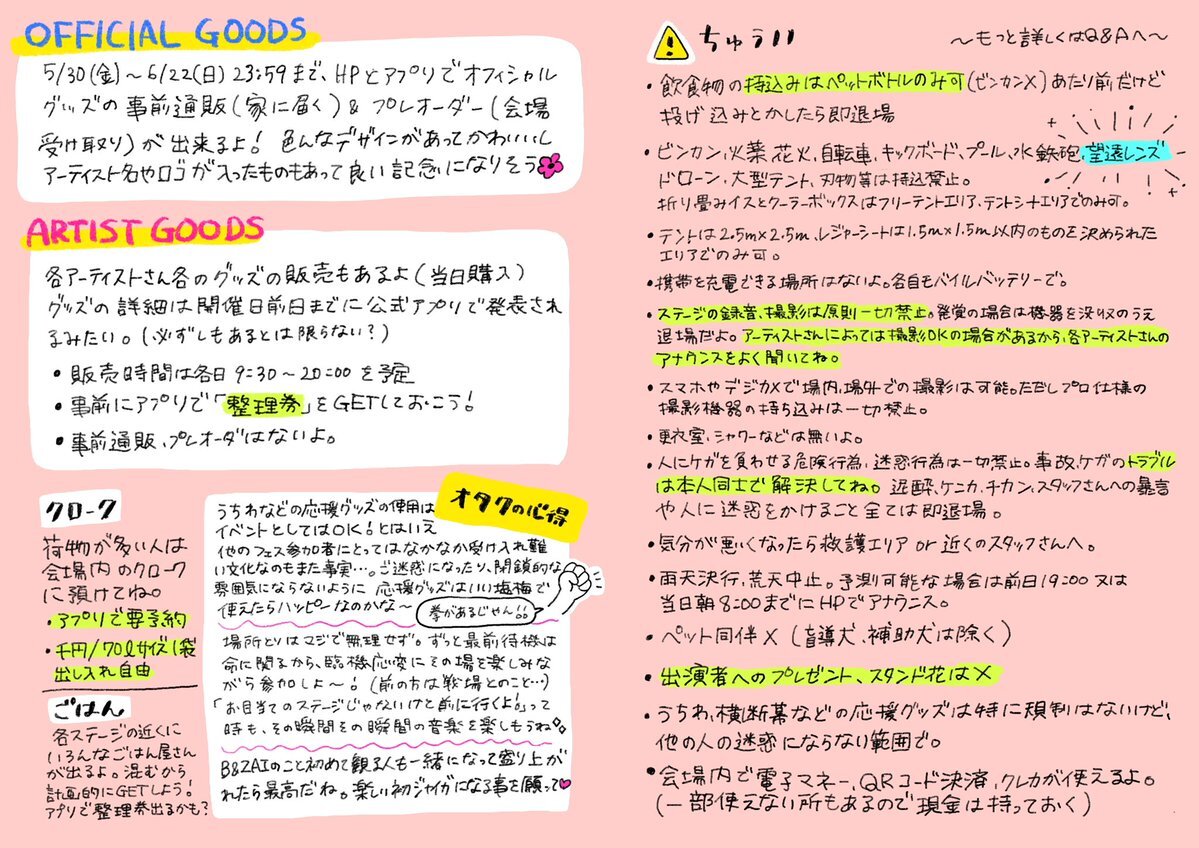 OFFICIAL GOODS
5/30(金)~6/22(日)23:59まで、HPとアプリでオフィシャル
グッズの事前通販(家に届く)& プレオーダー(会場
受け取り)が出来るよ! 色んなデザインがあってかわいいし
アーティスト名やロゴが入ったものもあって良い記念になりそう
ARTIST GOODS
各アーティストさん各のグッズの販売もあるよ(当日購入)
グッズの詳細は開催日前日までに公式アプリで発表され
るみたい。(必ずしもあるとは限らない?)
・販売時間は各日9:30~20:00を予定
・事前にアプリで「整理券」をGETしておこう!
・事前通販、プレオーダはないよ。
クローク
荷物が多い人は
会場内のクローク
に預けてね。
・アプリで要予約
・千円/70ℓサイズ1袋
出し入れ自由
ごはん
各ステージの近くに
いろんなごはん屋さん
が出るよ。混むから
計画的にGETしよう!
アプリで整理券出るかも?
オタクの心得
うちわなどの応援グッズの使用は
イベントとしてはOK!とはいえ
他のフェス参加者にとってはなかなか受け入れ難
い文化なのもまた事実…。ご迷惑になったり、閉鎖的な
雰囲気にならないように 応援グッズはいい塩梅で
使えたらハッピーなのかな~
拳があるじゃん!!
場所とりはマジで無理せず。ずっと最前待機は
命に関るから、臨機応変にその場を楽しみな
がら参加しよ~!(前の方は戦場とのこと…)
「お目当てのステージじゃないけど前に行くよ!」って
時も、その瞬間その瞬間の音楽を楽しもうね
B&ZAIのこと初めて観る人も一緒になって盛り上が
れたら最高だね。楽しい初ジャイガになる事を願って
ちゅうい
~もっと詳しくはQ&Aへ~
・飲食物の持込みはペットボトルのみ可(ビンカン×)あたり前だけど
投げ込みとかしたら即退場
・ビンカン、火薬、花火、自転車、キックボード、プール、水鉄砲、望遠レンズ
ドローン、大型テント、刃物等は持込禁止。
折り畳みイスとクーラーボックスはフリーテントエリア、テントシートエリアでのみ可。
・テントは2.5m×2.5m、レジャーシートは1.5m×1.5m以内のものを決められた
エリアでのみ可。
・携帯を充電できる場所はないよ。各自モバイルバッテリーで。
・ステージの録音、撮影は原則一切禁止。発覚の場合は機器を没収のうえ
退場だよ。アーティストさんによっては撮影OKの場合があるから、各アーティストさんの
アナウンスをよく聞いてね。
・スマホやデジカメで場内、場外での撮影は可能。ただしプロ仕様の
撮影機器の持ち込みは一切禁止。
・更衣室、シャワーなどは無いよ。
・人にケガを負わせる危険行為、迷惑行為は一切禁止。事故、ケガのトラブル
は本人同士で解決してね。泥酔、ケンカ、チカン、スタッフさんへの暴言
や人に迷惑をかけること全ては即退場。
・気分が悪くなったら救護エリアor近くのスタッフさんへ。
・雨天決行、荒天中止。予測可能な場合は前日19:00又は
当日朝8:00までにHPでアナウンス。
・ペット同伴×(盲導犬、補助犬は除く)
・出演者へのプレゼント、スタンド花は×
・うちわ、横断幕などの応援グッズは特に規制はないけど、
他の人の迷惑にならない範囲で。
・会場内で電子マネー、QRコード決済、クレカが使えるよ。
(一部使えない所もあるので現金は持っておく)